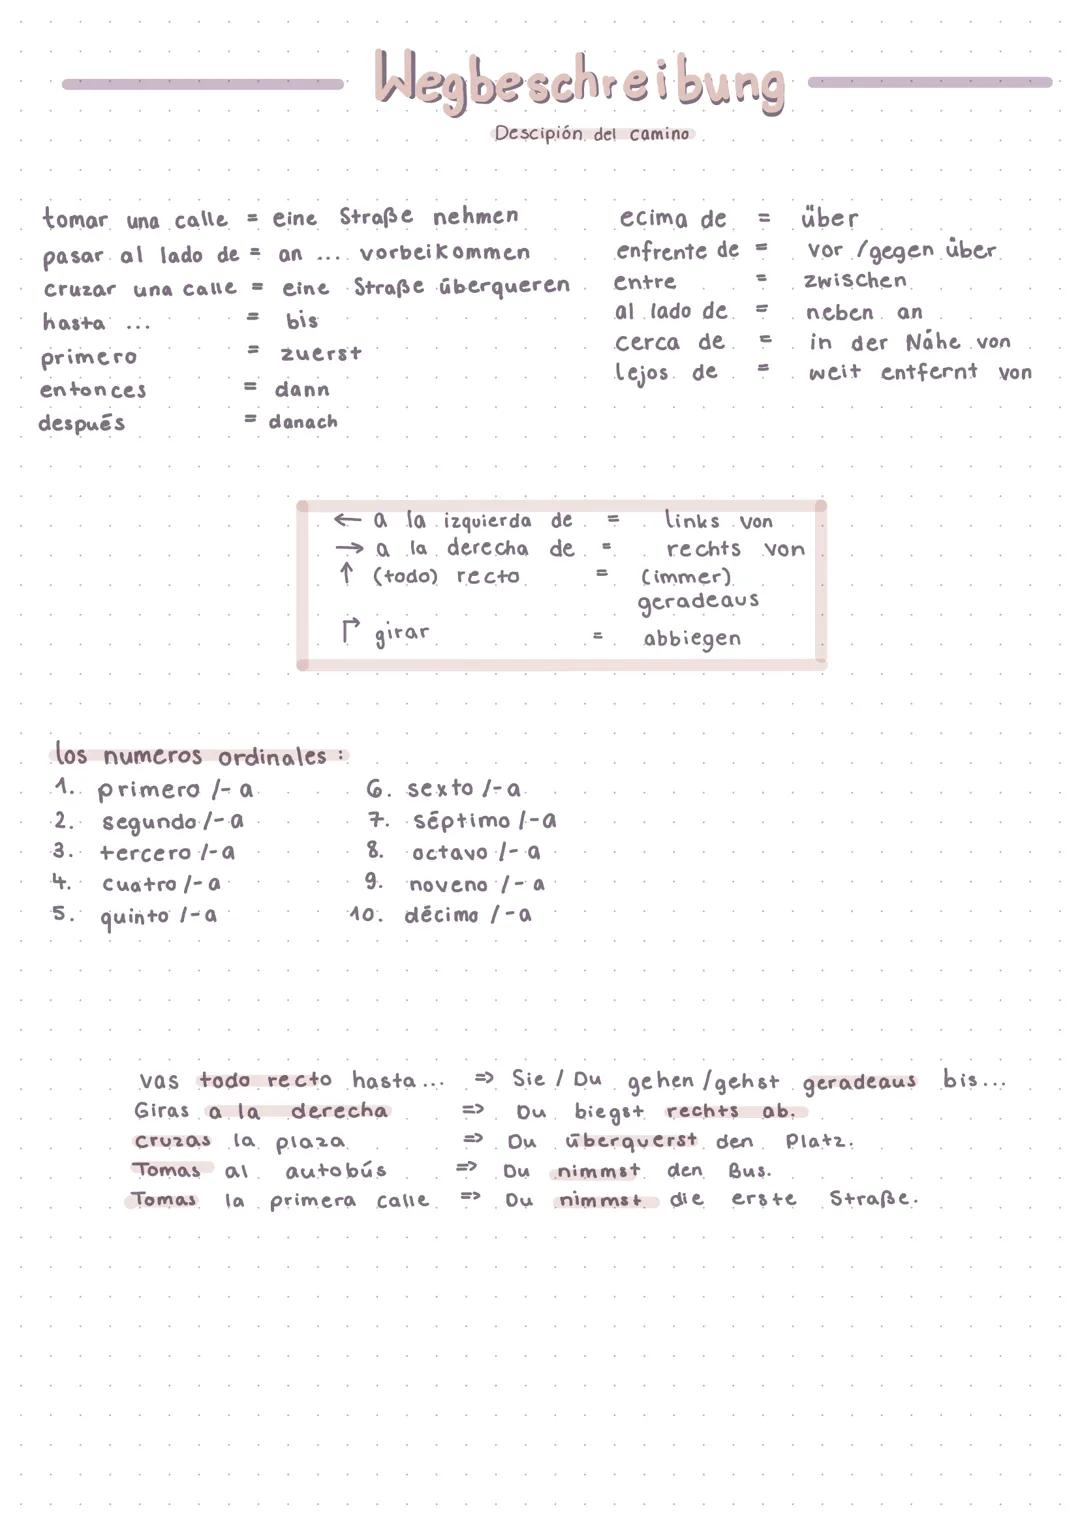 Wegbeschreibung
Descipión del camino
tomar una calle = eine Straße nehmen
pasar al lado de = an ... vorbeikommen
cruzar una calle = eine Straße überqueren
hasta ... = bis
primero = zuerst
entonces = dann
después = danach
ecima de = über
enfrente de = vor / gegen über
entre = zwischen
al lado de = neben an
cerca de = in der Nähe von
lejos de = weit entfernt von
← a la izquierda de = links von
→ a la derecha de = rechts von
↑ (todo) recto = (immer)
geradeaus
↱ girar = abbiegen
los numeros ordinales :
1. primero /-a
2. segundo /-a
3. tercero /-a
4. cuatro /-a
5. quinto /-a
6. sexto /-a
7. séptimo /-a
8. octavo /-a
9. noveno /-a
10. décimo /-a
vas todo recto hasta... => Sie / Du gehen /gehst geradeaus bis...
Giras a la derecha => Du biegst rechts ab.
cruzas la plaza => Du überquerst den Platz.
Tomas al autobús => Du nimmst den Bus.
Tomas la primera calle => Du nimmst die erste Straße.